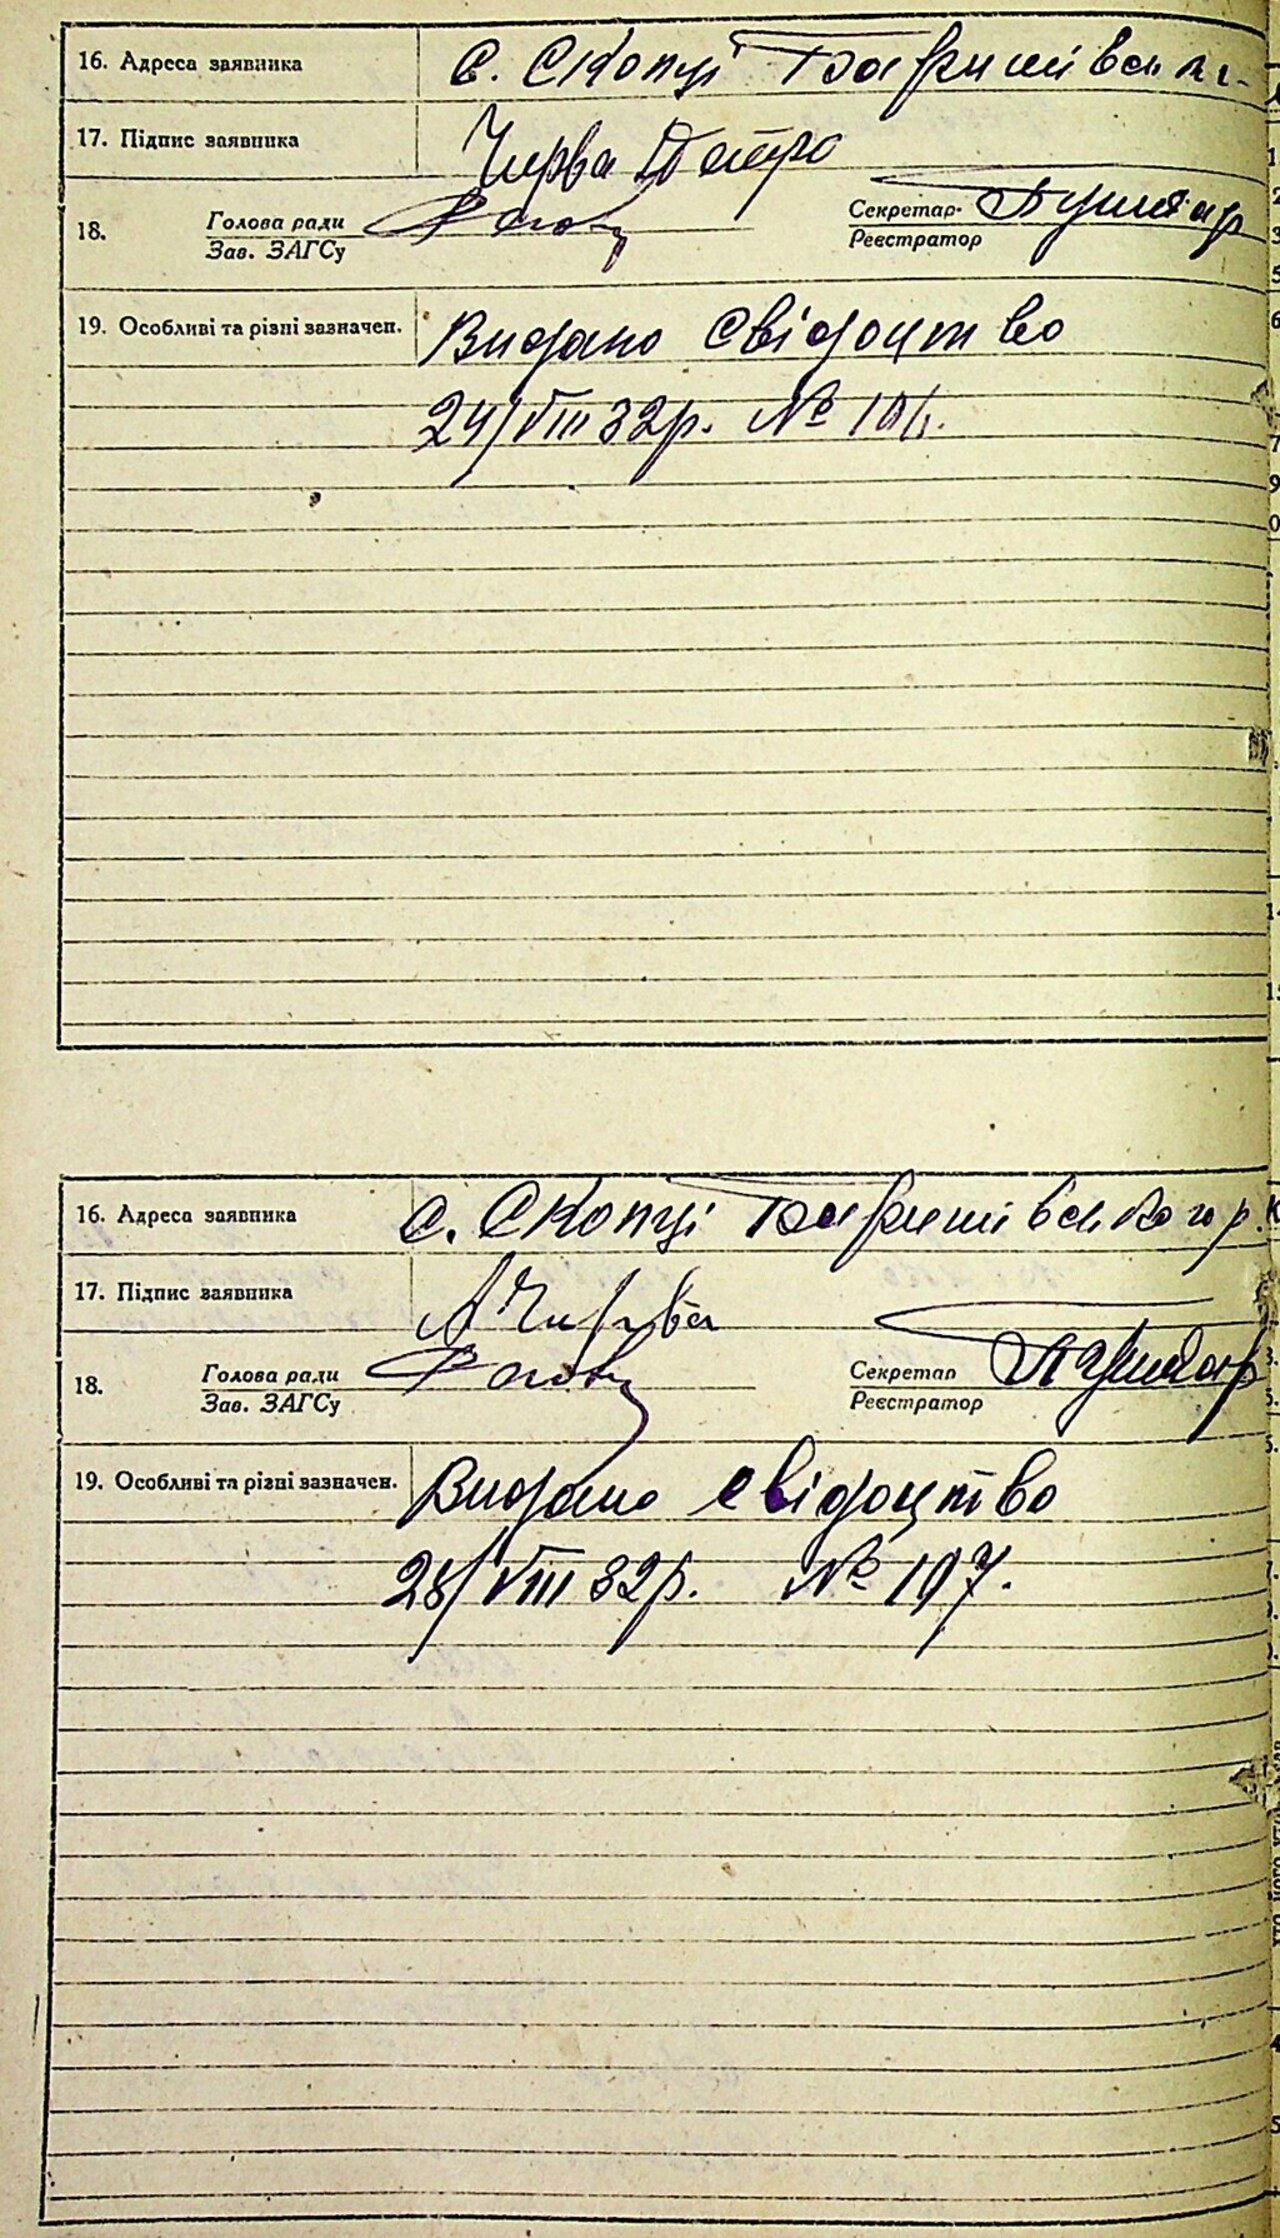 16. Адреса заявника с. Скопці Баришівськ
17. Підпис заявника Чирва Петро
18. Голова ради Секретар
Зав. ЗАГСу Реєстратор
19. Особливі та різні зазначен. Видано свідоцтво
24/VIII 32р. №
16. Адреса заявника с. Скопці Баришівського р.
17. Підпис заявника А Чирва
18. Голова ради Секретар
Зав. ЗАГСу Реєстратор
19. Особливі та різні зазначен. Видано свідоцтво
28/VIII 32р. № 107.